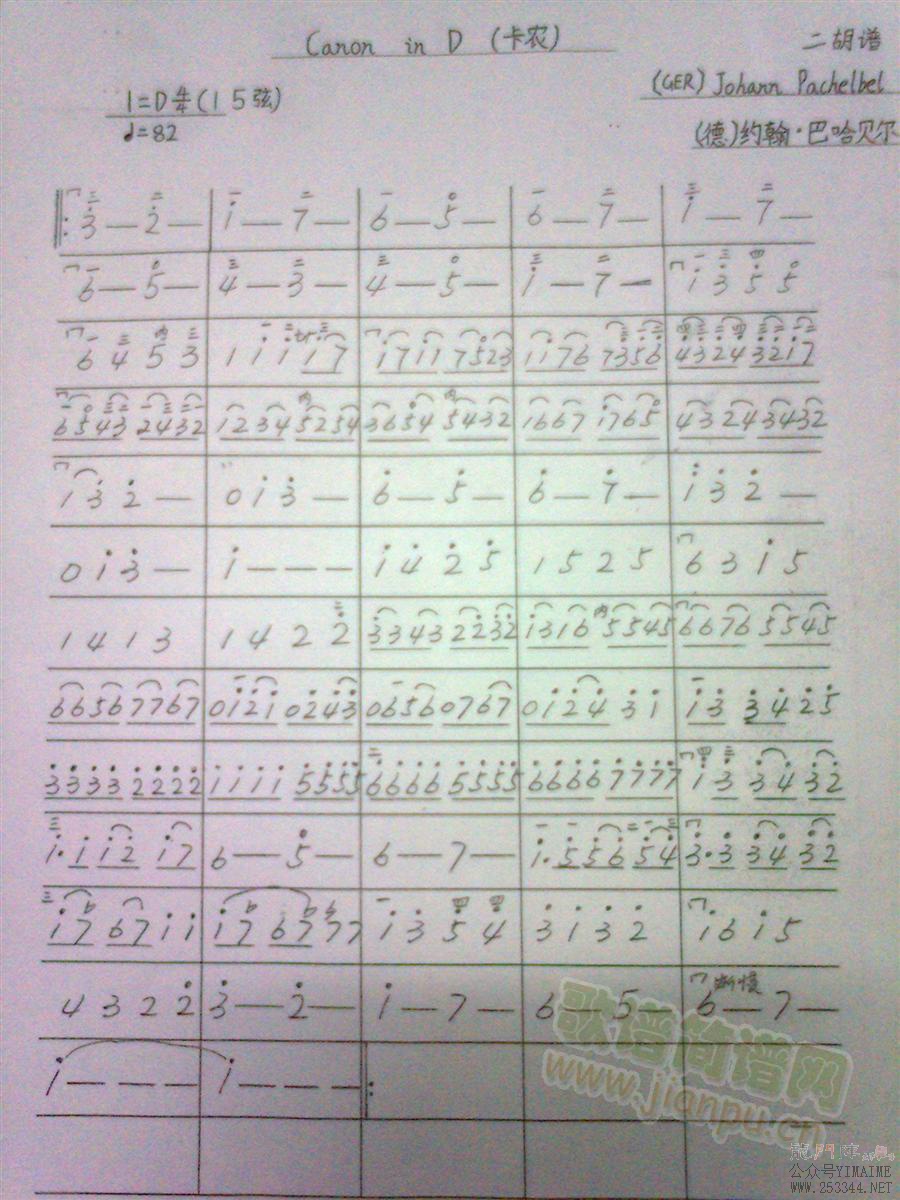 Canon in D (卡农)
二胡谱
1=D 4/4 (1 5弦)
(GER) Johann Pachelbel
♩=82
(德)约翰·巴哈贝尔
3 — 2 — | 1 — 7 — | 6 — 5 — | 6 — 7 — | 1 — 7 —
6 — 5 — | 4 — 3 — | 4 — 5 — | 1 — 7 — | 1 3 5 5
6 4 5 3 | 1 1 1 1 7 | 1 7 1 1 7 5 2 3 | 1 1 7 6 7 3 5 6 | 4 3 2 4 3 2 1 7
6 5 4 3 2 4 3 2 | 1 2 3 4 5 2 5 4 | 3 6 5 4 5 4 3 2 | 1 6 6 7 1 7 6 5 | 4 3 2 4 3 4 3 2
1 3 2 — | 0 1 3 — | 6 — 5 — | 6 — 7 — | 1 3 2 —
0 1 3 — | 1 — — — | 1 4 2 5 | 1 5 2 5 | 6 3 1 5
1 4 1 3 | 1 4 2 2 | 3 3 4 3 2 2 3 2 | 1 3 1 6 5 5 4 5 | 6 6 7 6 5 5 4 5
6 6 5 6 7 7 6 7 | 0 1 2 1 0 2 4 3 | 0 6 5 6 0 7 6 7 | 0 1 2 4 3 1 | 1 3 3 4 2 5
3 3 3 3 2 2 2 2 | 1 1 1 1 5 5 5 5 | 6 6 6 6 5 5 5 5 | 6 6 6 6 7 7 7 7 | 1 3 3 4 3 2
1· 1 1 2 1 7 | 6 — 5 — | 6 — 7 — | 1· 5 5 6 5 4 | 3· 3 3 4 3 2
1 7 6 7 1 1 | 1 7 6 7 7 7 | 1 3 5 4 | 3 1 3 2 | 1 6 1 5
4 3 2 2 | 3 — 2 — | 1 — 7 — | 6 — 5 — | 6 — 7 —
渐慢
1 — — — | 1 — — —
歌谱简谱网
www.jianpu.cn
公众号YIMAIME
www.253344.NET